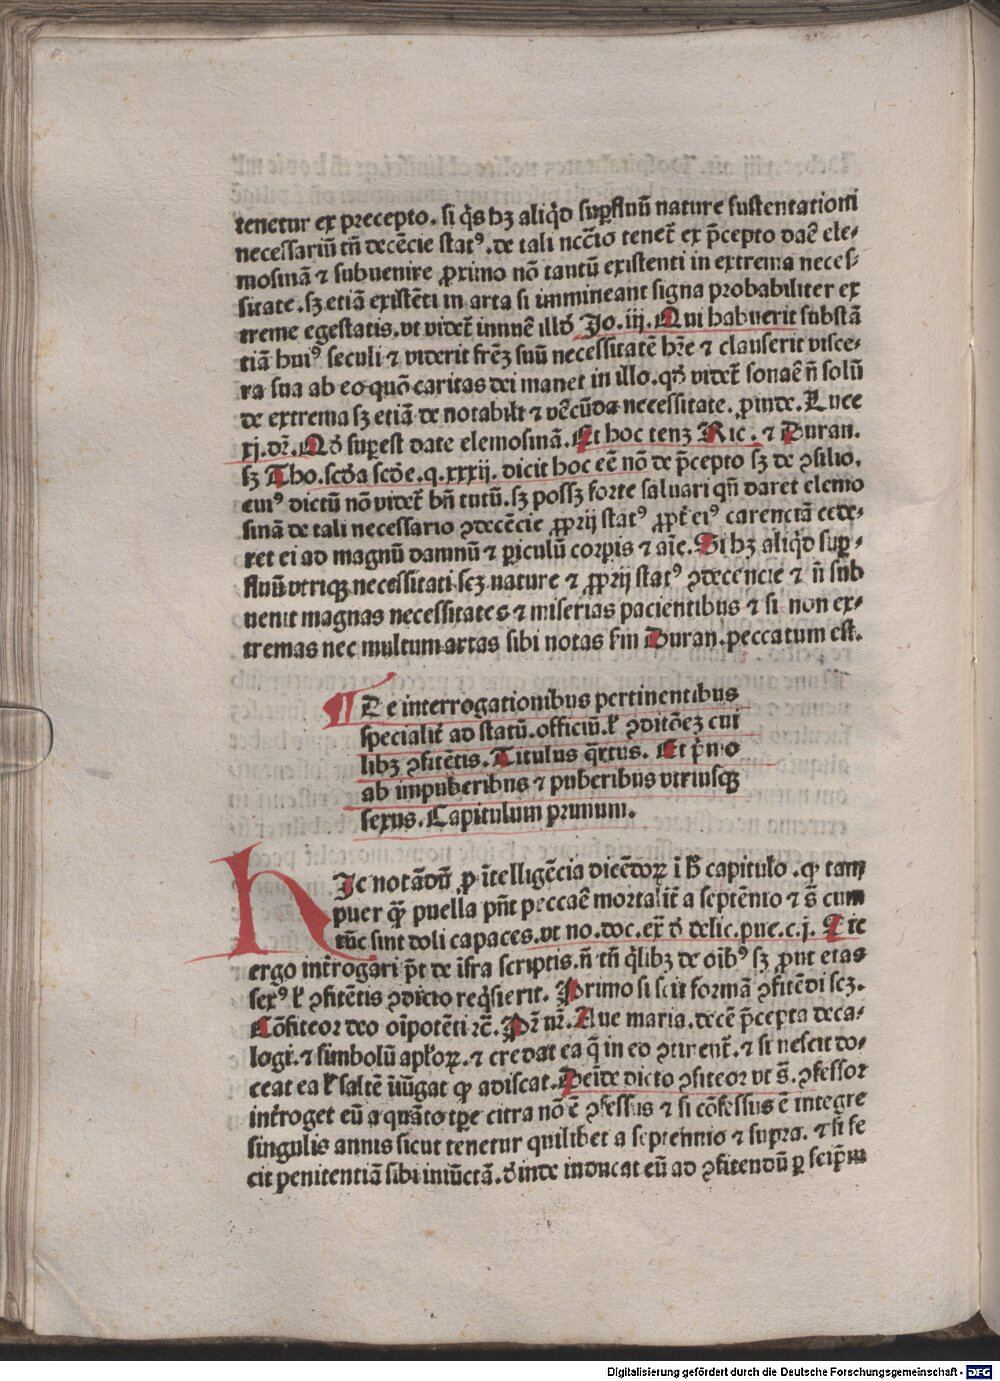 tenetur ex precepto. si q̇s hꝫ aliq̇d suꝑfluū nature sustentationi
necessariū tn̄ decēcie statꝰ. de tali nccīo tenet̄ ex p̄cepto daē ele-
mosinā ⁊ subuenire ꝓximo nō tantū existenti in extrema neces-
sitate. sꝫ etiā existēti in arta si immineant signa probabiliter ex
treme egestatis. vt videt̄ innuē illḋ Jo. iij. Qui habuerit substā
tiā huiꝰ seculi ⁊ viderit frēꝫ suū necessitatē hr̄e ⁊ clauserit visce-
ra sua ab eo quō caritas dei manet in illo. qḋ videt̄ sonaē n̄ solū
de extrema sꝫ etiā de notabili ⁊ vēcūda necessitate. ꝓinde. Luce
xj. dr̄. Qḋ suꝑest date elemosinā. Et hoc tenꝫ Ric. ⁊ Duran.
sꝫ Tho. scḋa scḋe. q. xxxij. dicit hoc eē nō de p̄cepto sꝫ de ꝯsilio.
cuiꝰ dictū nō videt̄ bn̄ tutū. sꝫ possꝫ forte saluari qn̄ daret elemo
sinā de tali necessario ꝯdecēcie ꝓprij statꝰ ꝓpt̄ eiꝰ carenciā cede-
ret ei ad magnū damnū ⁊ ꝑiculū corꝑis ⁊ aīe. Si hꝫ aliq̇d suꝑ-
fluū vtriqꝫ necessitati scꝫ nature ⁊ ꝓprij statꝰ ꝯdecencie ⁊ n̄ sub
uenit magnas necessitates ⁊ miserias pacientibus ⁊ si non ex-
tremas nec multum artas sibi notas s̄m Duran. peccatum est.
¶ De interrogationibus pertinentibus
specialit̄ ad statū. officiū. ł ꝯditōeꝫ cui
libꝫ ꝯfitētis. Titulus q̈rtus. Et p̄mo
ab impuberibus ⁊ puberibus vtriusqꝫ
sexus. Capitulum primum.
HJc notādū ꝓ ītelligēcia dicēdoꝝ ī h̄ capitulo. ꝙ tam
puer q̄ꝫ puella pn̄t peccaē mortalit̄ a septēnio ⁊ s̄ cum
tūc sint doli capaces. vt no. doc. ex̄ ḋ delic. pue. c. j. Sic
ergo int̄rogari p̄t de īfra scriptis. n̄ tn̄ q̇libꝫ de oībꝰ sꝫ ꝓut etas
sexꝰ ł ꝯfitētis ꝯdicio req̇sierit. Primo si scit formā ꝯfitēdi scꝫ.
Cōfiteor deo oīpotēti ⁊c̄. Pr̄ nr̄. Aue maria. decē p̄cepta deca-
logi. ⁊ simbolū apłoꝝ. ⁊ credat ea q̄ in eo ꝯtinent̄. ⁊ si nescit do-
ceat ea ł saltē iniūgat ꝙ adiscat. Deīde dicto ꝯfiteor vt s̄. ꝯfessor
int̄roget eū a quāto tꝑe citra nō ē ꝯfessus ⁊ si cōfessus ē integre
singulis annis sicut tenetur quilibet a septennio ⁊ supra. ⁊ si fe
cit penitentiā sibi iniūctā. ḋinde inducat eū ad ꝯfitendū ꝑ seip̄m
Digitalisierung gefördert durch die Deutsche Forschungsgemeinschaft - DFG